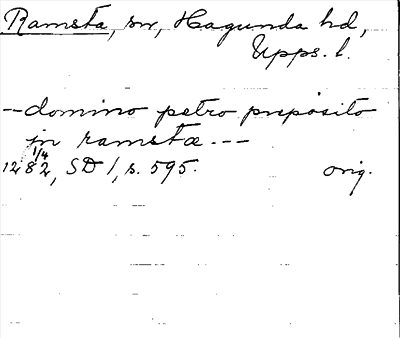 Ramsta, sn, Hagunda hd,
Upps. l.
-- domino petro preposito
jn ramstæ ---
12 1/4 82, SD 1, s. 595. orig.